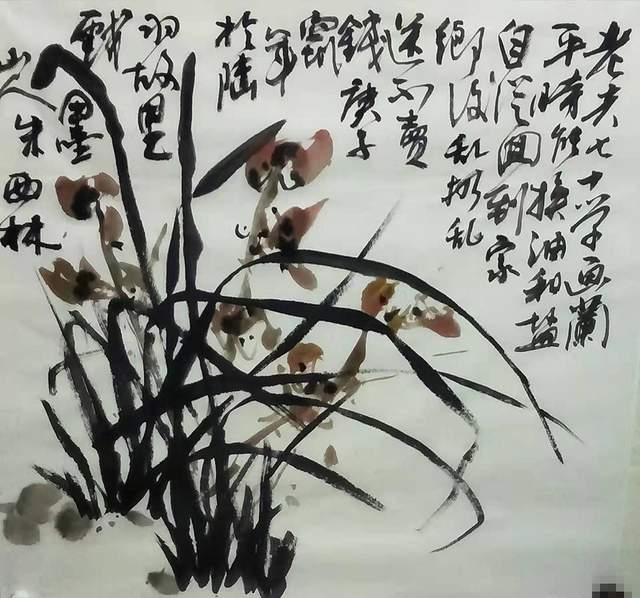 老夫七十学画蘭
平時能換油和盐
自從回到家
鄉後乱撇乱
送不賣
錢庚子
鼠
年
於陸
羽故里
戲墨
山人朱西林